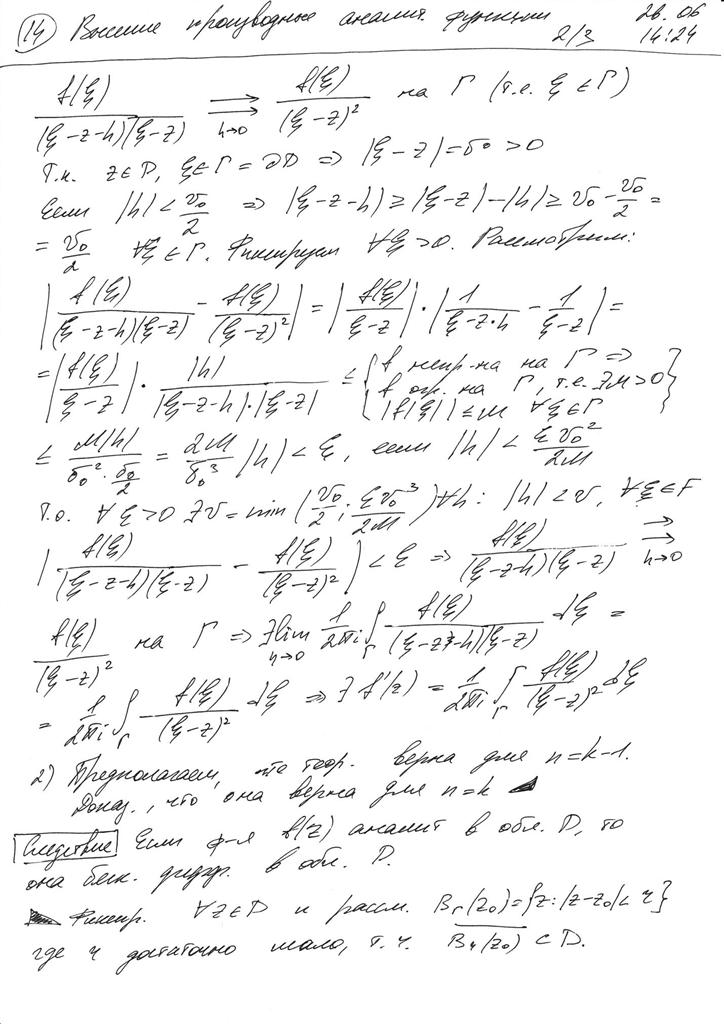 14 Высшие производные аналит. функции 2/3 26.06 14:24
f(ξ)/((ξ-z-h)(ξ-z)) ⇉ h→0 f(ξ)/(ξ-z)² на Γ (т.е. ξ ∈ Γ)
Т.к. z∈D, ξ∈Γ = ∂D ⇒ |ξ-z| = δ₀ > 0
Если |h| < δ₀/2 ⇒ |ξ-z-h| ≥ |ξ-z| - |h| ≥ δ₀ - δ₀/2 =
= δ₀/2 ∀ξ ∈ Γ. Фиксируем ∀ξ > 0. Рассмотрим:
|f(ξ)/((ξ-z-h)(ξ-z)) - f(ξ)/(ξ-z)²| = |f(ξ)/(ξ-z)| · |1/(ξ-z-h) - 1/(ξ-z)| =
= |f(ξ)/(ξ-z)| · |h|/(|ξ-z-h|·|ξ-z|) ≤ {f непр-на на Γ ⇒
f огр. на Γ, т.е. ∃M>0
|f(ξ)| ≤ M ∀ξ∈Γ}
≤ M|h|/(δ₀²·δ₀/2) = 2M/δ₀³ |h| < ξ, если |h| < ξδ₀²/2M
Т.о. ∀ξ>0 ∃δ = min(δ₀/2; ξδ₀³/2M) ∀h: |h| < δ, ∀ξ∈F
|f(ξ)/((ξ-z-h)(ξ-z)) - f(ξ)/(ξ-z)²| < ξ ⇒ f(ξ)/((ξ-z-h)(ξ-z)) ⇉ h→0
f(ξ)/(ξ-z)² на Γ ⇒ ∃lim h→0 1/2πi ∫Γ f(ξ)/((ξ-z-h)(ξ-z)) dξ =
= 1/2πi ∫Γ f(ξ)/(ξ-z)² dξ ⇒ ∃ f'(z) = 1/2πi ∫Γ f(ξ)/(ξ-z)² dξ
2) Предполагаем, что теор. верна для n=k-1.
Доказ., что она верна для n=k
Следствие Если ф-я f(z) аналит в обл. D, то
она беск. дифф. в обл. D.
Фиксир. ∀z∈D и рассм. Br(z₀) = {z: |z-z₀| < r}
где r достаточно мало, т.ч. Br(z₀) ⊂ D.